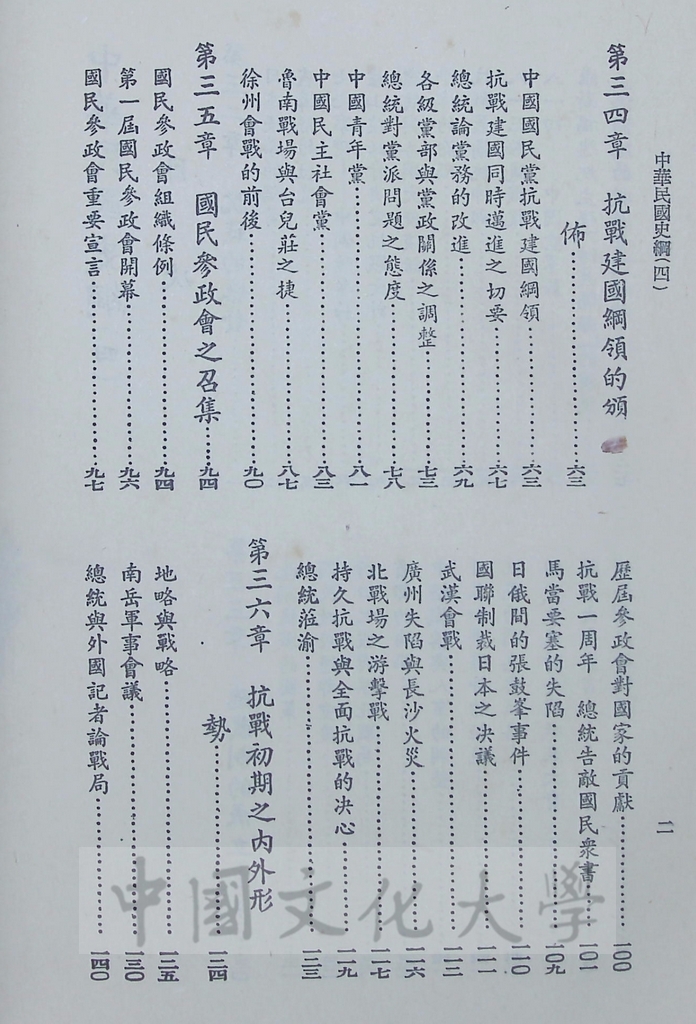 中華民國史綱(四)
二
第三四章 抗戰建國綱領的頒
佈……六三
中國國民黨抗戰建國綱領……六三
抗戰建國同時邁進之切要……六七
總統論黨務的改進……六九
各級黨部與黨政關係之調整……七三
總統對黨派問題之態度……七八
中國青年黨……八一
中國民主社會黨……八三
魯南戰場與台兒莊之捷……八七
徐州會戰的前後……九〇
第三五章 國民參政會之召集……九四
國民參政會組織條例……九四
第一屆國民參政會開幕……九六
國民參政會重要宣言……九七
歷屆參政會對國家的貢獻……一〇〇
抗戰一周年 總統告敵國民衆書……一〇一
馬當要塞的失陷……一〇九
日俄間的張鼓峯事件……一一〇
國聯制裁日本之決議……一一一
武漢會戰……一一二
廣州失陷與長沙火災……一一六
北戰場之游擊戰……一一七
持久抗戰與全面抗戰的决心……一一九
總統蒞渝……一二三
第三六章 抗戰初期之內外形
勢……一二四
地略與戰略……一二五
南岳軍事會議……一三〇
總統與外國記者論戰局……一四〇
中國文化大學